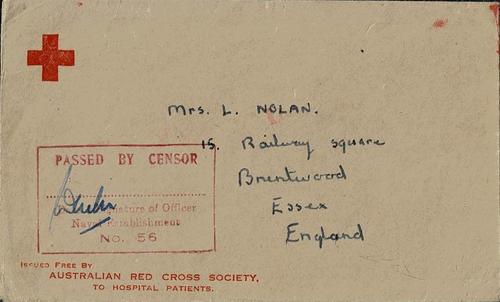 Mrs. L. NOLAN.
15. Railway square
Brentwood
Essex
England
PASSED BY CENSOR
Signature of Officer
Naval Establishment
No. 56
ISSUED FREE BY
AUSTRALIAN RED CROSS SOCIETY,
TO HOSPITAL PATIENTS.